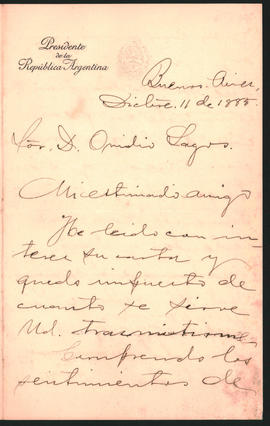 Presidente
de la
República Argentina
Buenos Aires,
Dicibre. 11 de 1885.
Sor. D. Ovidio Lagos.
Mi estimado amigo
He leido con in-
teres su carta y
quedo impuesto de
cuanto se sirve
Ud. trasmitirme
Comprendo los
sentimientos de